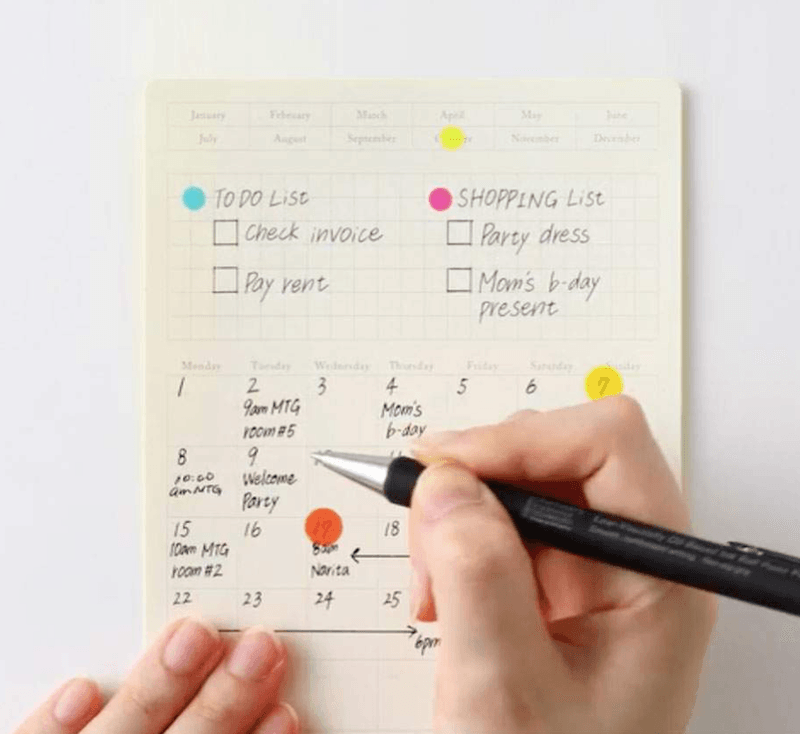 January February March April May June
July August September November December
TO DO List
Check invoice
Pay rent
SHOPPING List
Party dress
Mom's b-day
present
Monday Tuesday Wednesday Thursday Friday Saturday Sunday
1 2 3 4 5 6 7
9am MTG Mom's
room #5 b-day
8 9
10:00 Welcome
am MTG Party
15 16 17 18
10am MTG 8am
room #2 Narita
22 23 24 25
6pm